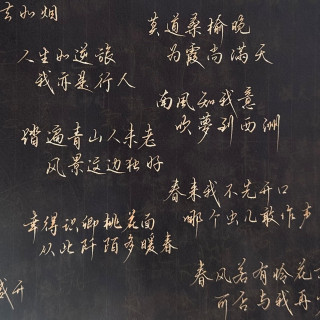 去如烟
人生如逆旅
我亦是行人
踏遍青山人未老
风景这边独好
幸得识卿桃花面
从此阡陌多暖春
盛开
莫道桑榆晚
为霞尚满天
南風知我意
吹夢到西洲
春来我不先开口
哪个虫儿敢作声
春风若有怜花
可否与我再